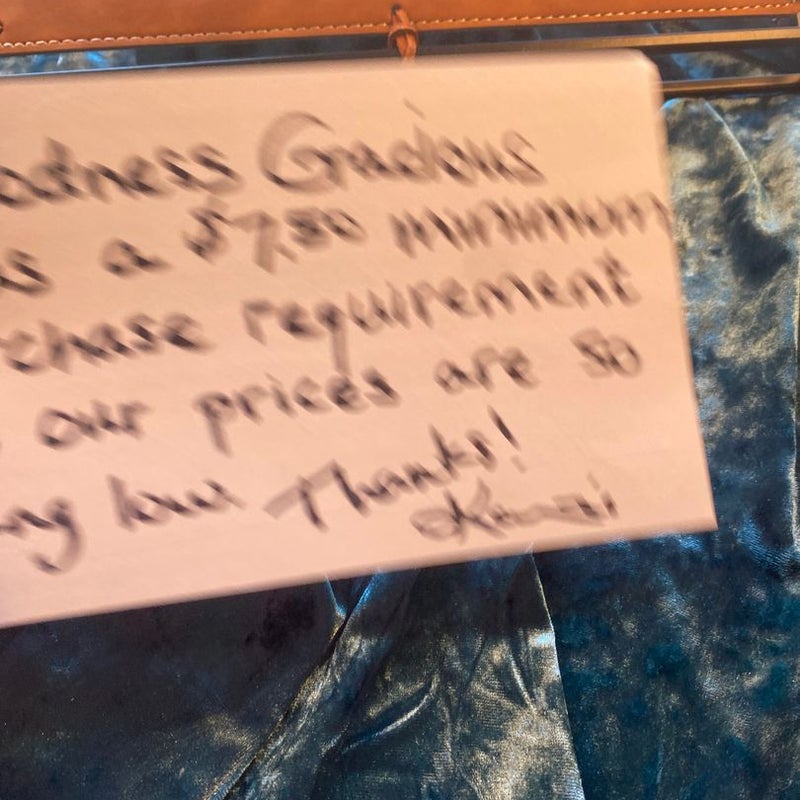 odness Gracious
as a $7.50 minimum
rchase requirement
our prices are so
ng low Thanks!